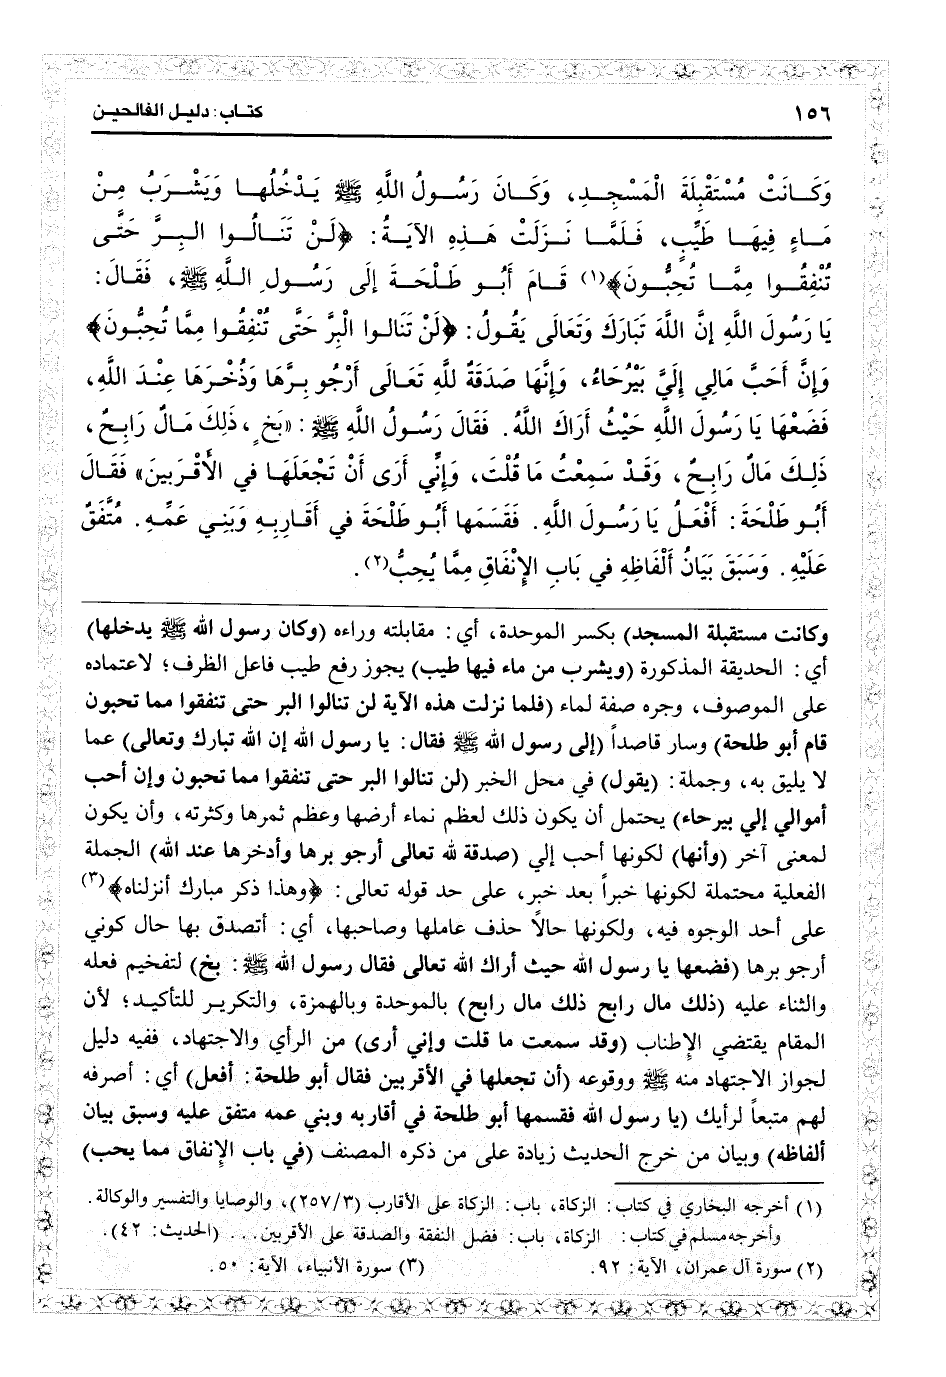 ١٥٦
كتاب: دليل الفالحين
وَكَانَتْ مُسْتَقْبِلَةَ الْمَسْجِدِ، وَكَانَ رَسُولُ اللَّهِ ﷺ يَدْخُلُهَا وَيَشْرَبُ مِنْ
مَاءٍ فِيهَا طَيِّبٍ، فَلَمَّا نَزَلَتْ هَذِهِ الآيَةُ: ﴿لَنْ تَنَالُوا البِرَّ حَتَّى
تُنْفِقُوا مِمَّا تُحِبُّونَ﴾(١) قَامَ أَبُو طَلْحَةَ إِلَى رَسُولِ اللَّهِ ﷺ، فَقَالَ:
يَا رَسُولَ اللَّهِ إنَّ اللَّهَ تَبَارَكَ وَتَعَالَى يَقُولُ: ﴿لَنْ تَنَالوا الْبِرَّ حَتَّى تُنْفِقُوا مِمَّا تُحِبُّونَ﴾
وَإنَّ أَحَبَّ مَالِي إِلَيَّ بَيْرُحَاءُ، وَإِنَّهَا صَدَقَةٌ للَّهِ تَعَالَى أَرْجُو بِرَّهَا وَذُخْرَهَا عِنْدَ اللَّهِ،
فَضَعْهَا يَا رَسُولَ اللَّهِ حَيْثُ أَرَاكَ اللَّهُ. فَقَالَ رَسُولُ اللَّهِ ﷺ: «بَخٍ، ذَلِكَ مَالٌ رَابِحٌ،
ذَلِكَ مَالٌ رَابِحٌ، وَقَدْ سَمِعْتُ مَا قُلْتَ، وَإِنِّي أَرَى أَنْ تَجْعَلَهَا في الأَقْرَبِينَ» فَقَالَ
أَبُو طَلْحَةَ: أَفْعَلُ يَا رَسُولَ اللَّهِ. فَقَسَمَها أَبُو طَلْحَةَ في أَقَارِبِهِ وَبَنِي عَمِّهِ. مُتَّفَقٌ
عَلَيْهِ. وَسَبَقَ بَيَانُ أَلْفَاظِهِ في بَابِ الإِنْفَاقِ مِمَّا يُحِبُّ(٢).
وكانت مستقبلة المسجد) بكسر الموحدة، أي: مقابلته وراءه (وكان رسول الله ﷺ يدخلها)
أي: الحديقة المذكورة (ويشرب من ماء فيها طيب) يجوز رفع طيب فاعل الظرف؛ لاعتماده
على الموصوف، وجره صفة لماء (فلما نزلت هذه الآية لن تنالوا البر حتى تنفقوا مما تحبون
قام أبو طلحة) وسار قاصداً (إلى رسول الله ﷺ فقال: يا رسول الله إن الله تبارك وتعالى) عما
لا يليق به، وجملة: (يقول) في محل الخبر (لن تنالوا البر حتى تنفقوا مما تحبون وإن أحب
أموالي إلي بيرحاء) يحتمل أن يكون ذلك لعظم نماء أرضها وعظم ثمرها وكثرته، وأن يكون
لمعنى آخر (وأنها) لكونها أحب إلي (صدقة لله تعالى أرجو برها وأدخرها عند الله) الجملة
الفعلية محتملة لكونها خبراً بعد خبر، على حد قوله تعالى: ﴿وهذا ذكر مبارك أنزلناه﴾(٣)
على أحد الوجوه فيه، ولكونها حالاً حذف عاملها وصاحبها، أي: أتصدق بها حال كوني
أرجو برها (فضعها يا رسول الله حيث أراك الله تعالى فقال رسول الله ﷺ: بخ) لتفخيم فعله
والثناء عليه (ذلك مال رابح ذلك مال رابح) بالموحدة وبالهمزة، والتكرير للتأكيد؛ لأن
المقام يقتضي الإِطناب (وقد سمعت ما قلت وإني أرى) من الرأي والاجتهاد، ففيه دليل
لجواز الاجتهاد منه ﷺ ووقوعه (أن تجعلها في الأقربين فقال أبو طلحة: أفعل) أي: أصرفه
لهم متبعاً لرأيك (يا رسول الله فقسمها أبو طلحة في أقاربه وبني عمه متفق عليه وسبق بيان
ألفاظه) وبيان من خرج الحديث زيادة على من ذكره المصنف (في باب الإِنفاق مما يحب)
(١) أخرجه البخاري في كتاب: الزكاة، باب: الزكاة على الأقارب (٢٥٧/٣)، والوصايا والتفسير والوكالة.
وأخرجه مسلم في كتاب: الزكاة، باب: فضل النفقة والصدقة على الأقربين... (الحديث: ٤٢).
(٢) سورة آل عمران، الآية: ٩٢. (٣) سورة الأنبياء، الآية: ٥٠.